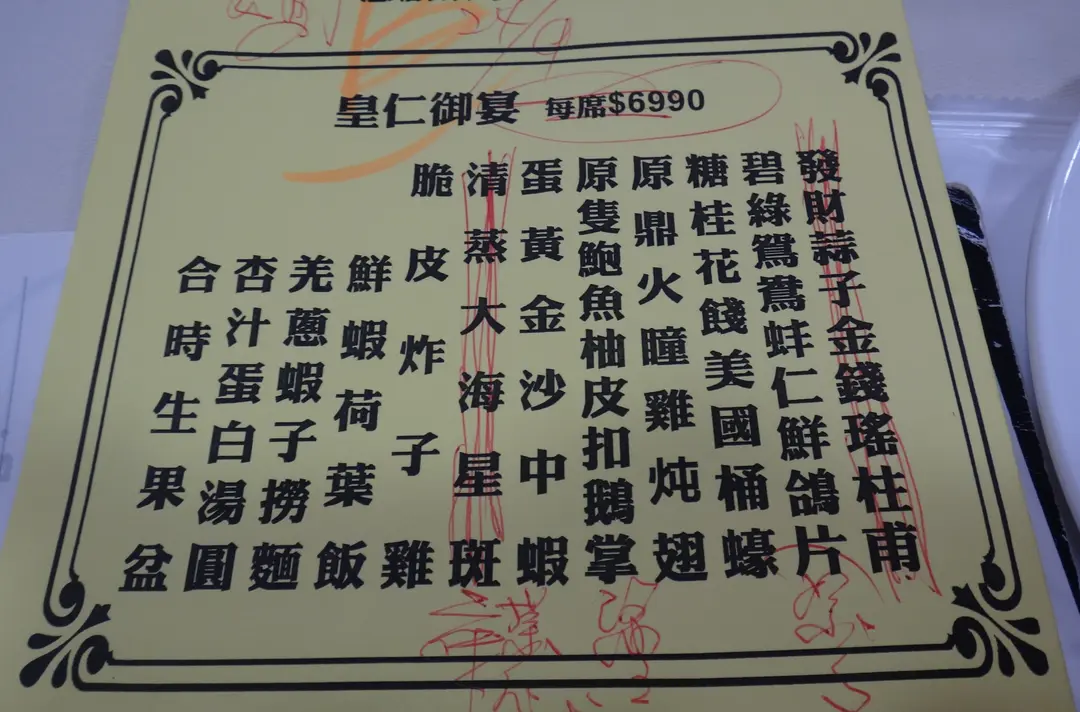 皇仁御宴 每席$6990
發財蒜子金錢瑤柱甫
碧綠鴛鴦蚌仁鮮鴿片
糖桂花餞美國桶蠔
原鼎火瞳雞炖翅
原隻鮑魚柚皮扣鵝掌
蛋黃金沙中蝦
清蒸大海星斑
脆皮炸子雞
鮮蝦荷葉飯
羌蔥蝦子撈麵
杏汁蛋白湯圓
合時生果盆